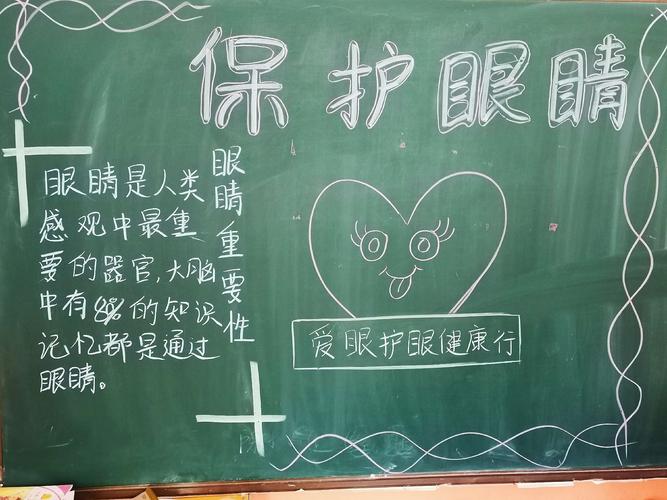 保护眼睛
眼睛重要性
眼睛是人类
感观中最重
要的器官,大脑
中有 的知识
记忆都是通过
眼睛。
爱眼护眼健康行